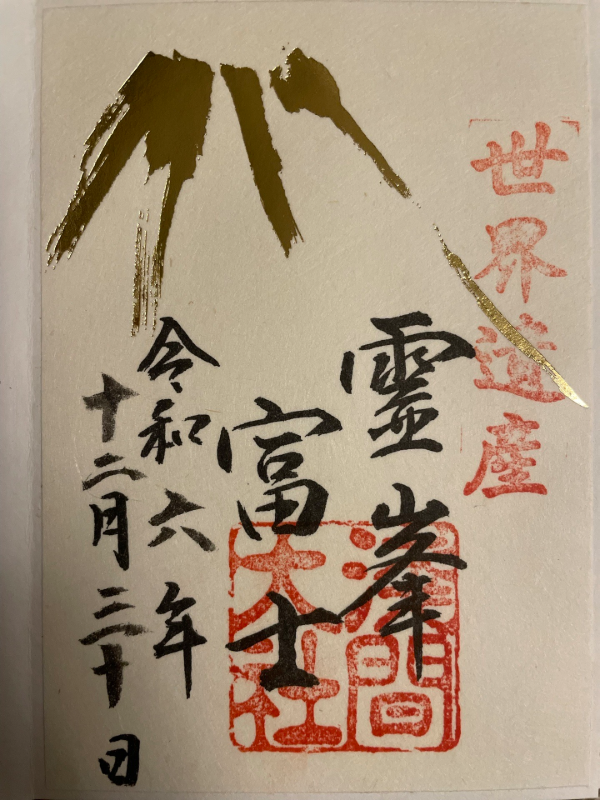 世界遺産
霊峯
富士
令和六年
十二月三十日
淺間
大社